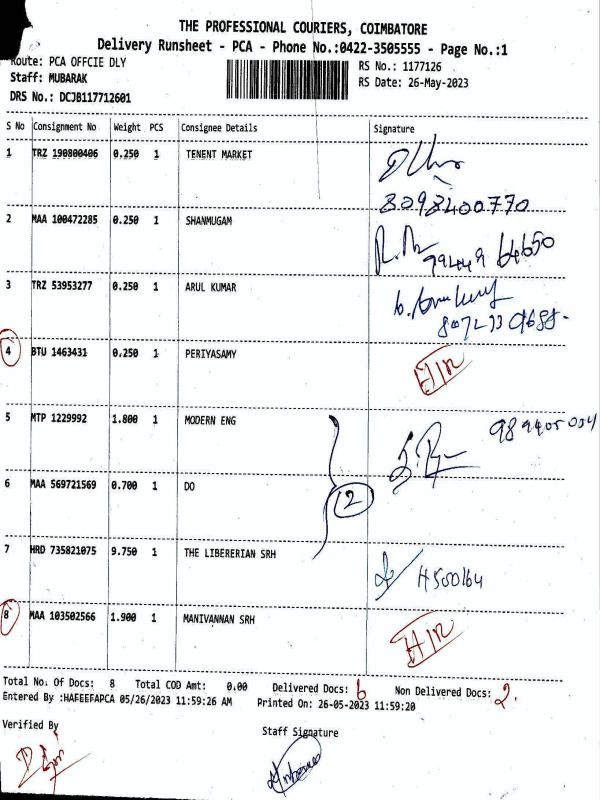 THE PROFESSIONAL COURIERS, COIMBATORE
Delivery Runsheet - PCA - Phone No.:0422-3505555 - Page No.:1
Route: PCA OFFCIE DLY
RS No.: 1177126
Staff: MUBARAK
RS Date: 26-May-2023
DRS No.: DCJB117712601
S No Consignment No Weight PCS Consignee Details Signature
1 TRZ 190800406 0.250 1 TENENT MARKET
8098400770
2 MAA 100472285 0.250 1 SHANMUGAM
99449 64650
3 TRZ 53953277 0.250 1 ARUL KUMAR
4 BTU 1463431 0.250 1 PERIYASAMY
5 MTP 1229992 1.800 1 MODERN ENG
6 MAA 569721569 0.700 1 DO
2
7 HRD 735821075 9.750 1 THE LIBERERIAN SRH
H500164
8 MAA 103502566 1.900 1 MANIVANNAN SRH
Total No. Of Docs: 8 Total COD Amt: 0.00 Delivered Docs: 6 Non Delivered Docs: 2
Entered By :HAFEEFAPCA 05/26/2023 11:59:26 AM Printed On: 26-05-2023 11:59:20
Verified By
Staff Signature